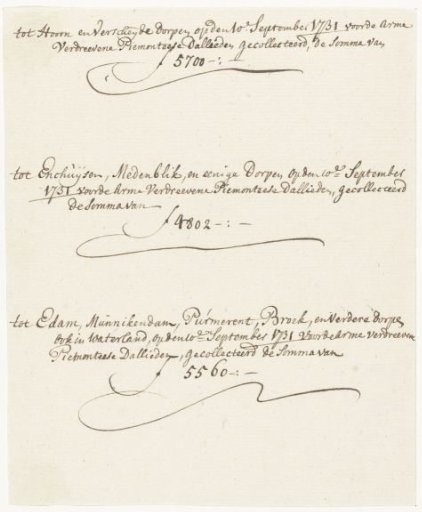 tot Hoorn en Verscheyde dorpen, op den 10.e September 1731 voor de Arme
Verdreevene Piemonteese Dallieden gecollecteerd, de Somma van
ƒ 5700 -:-
tot Enchùijsen, Medenblik, en eenige Dorpen op den 10.e September
1731 voor de Arme Verdreevene Piemonteese Dallieden, gecollecteerd
de Somma van
ƒ 4802 -:-
tot Edam, Mùnnikendam, Pùrmerent, Broek, en Verdere dorpe,
ook in Waterland, op den 10.e September 1731 Voor de Arme Verdreeven
Piemonteese Dallieden, gecollecteerd de Somma van
ƒ 5560 -:-